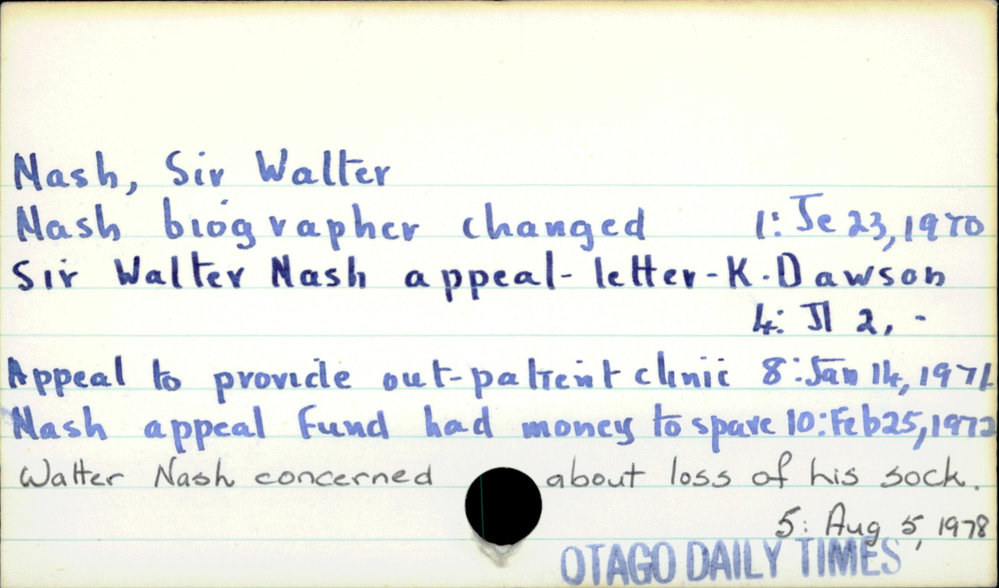 Nash, Sir Walter
Nash biographer changed 1: Je 23, 1970
Sir Walter Nash appeal - letter - K. Dawson
4: Jl 2, -
Appeal to provide out-patient clinic 8: Jan 14, 1971
Nash appeal fund had money to spare 10: Feb 25, 1972
Walter Nash concerned about loss of his sock.
5: Aug 5, 1978
OTAGO DAILY TIMES